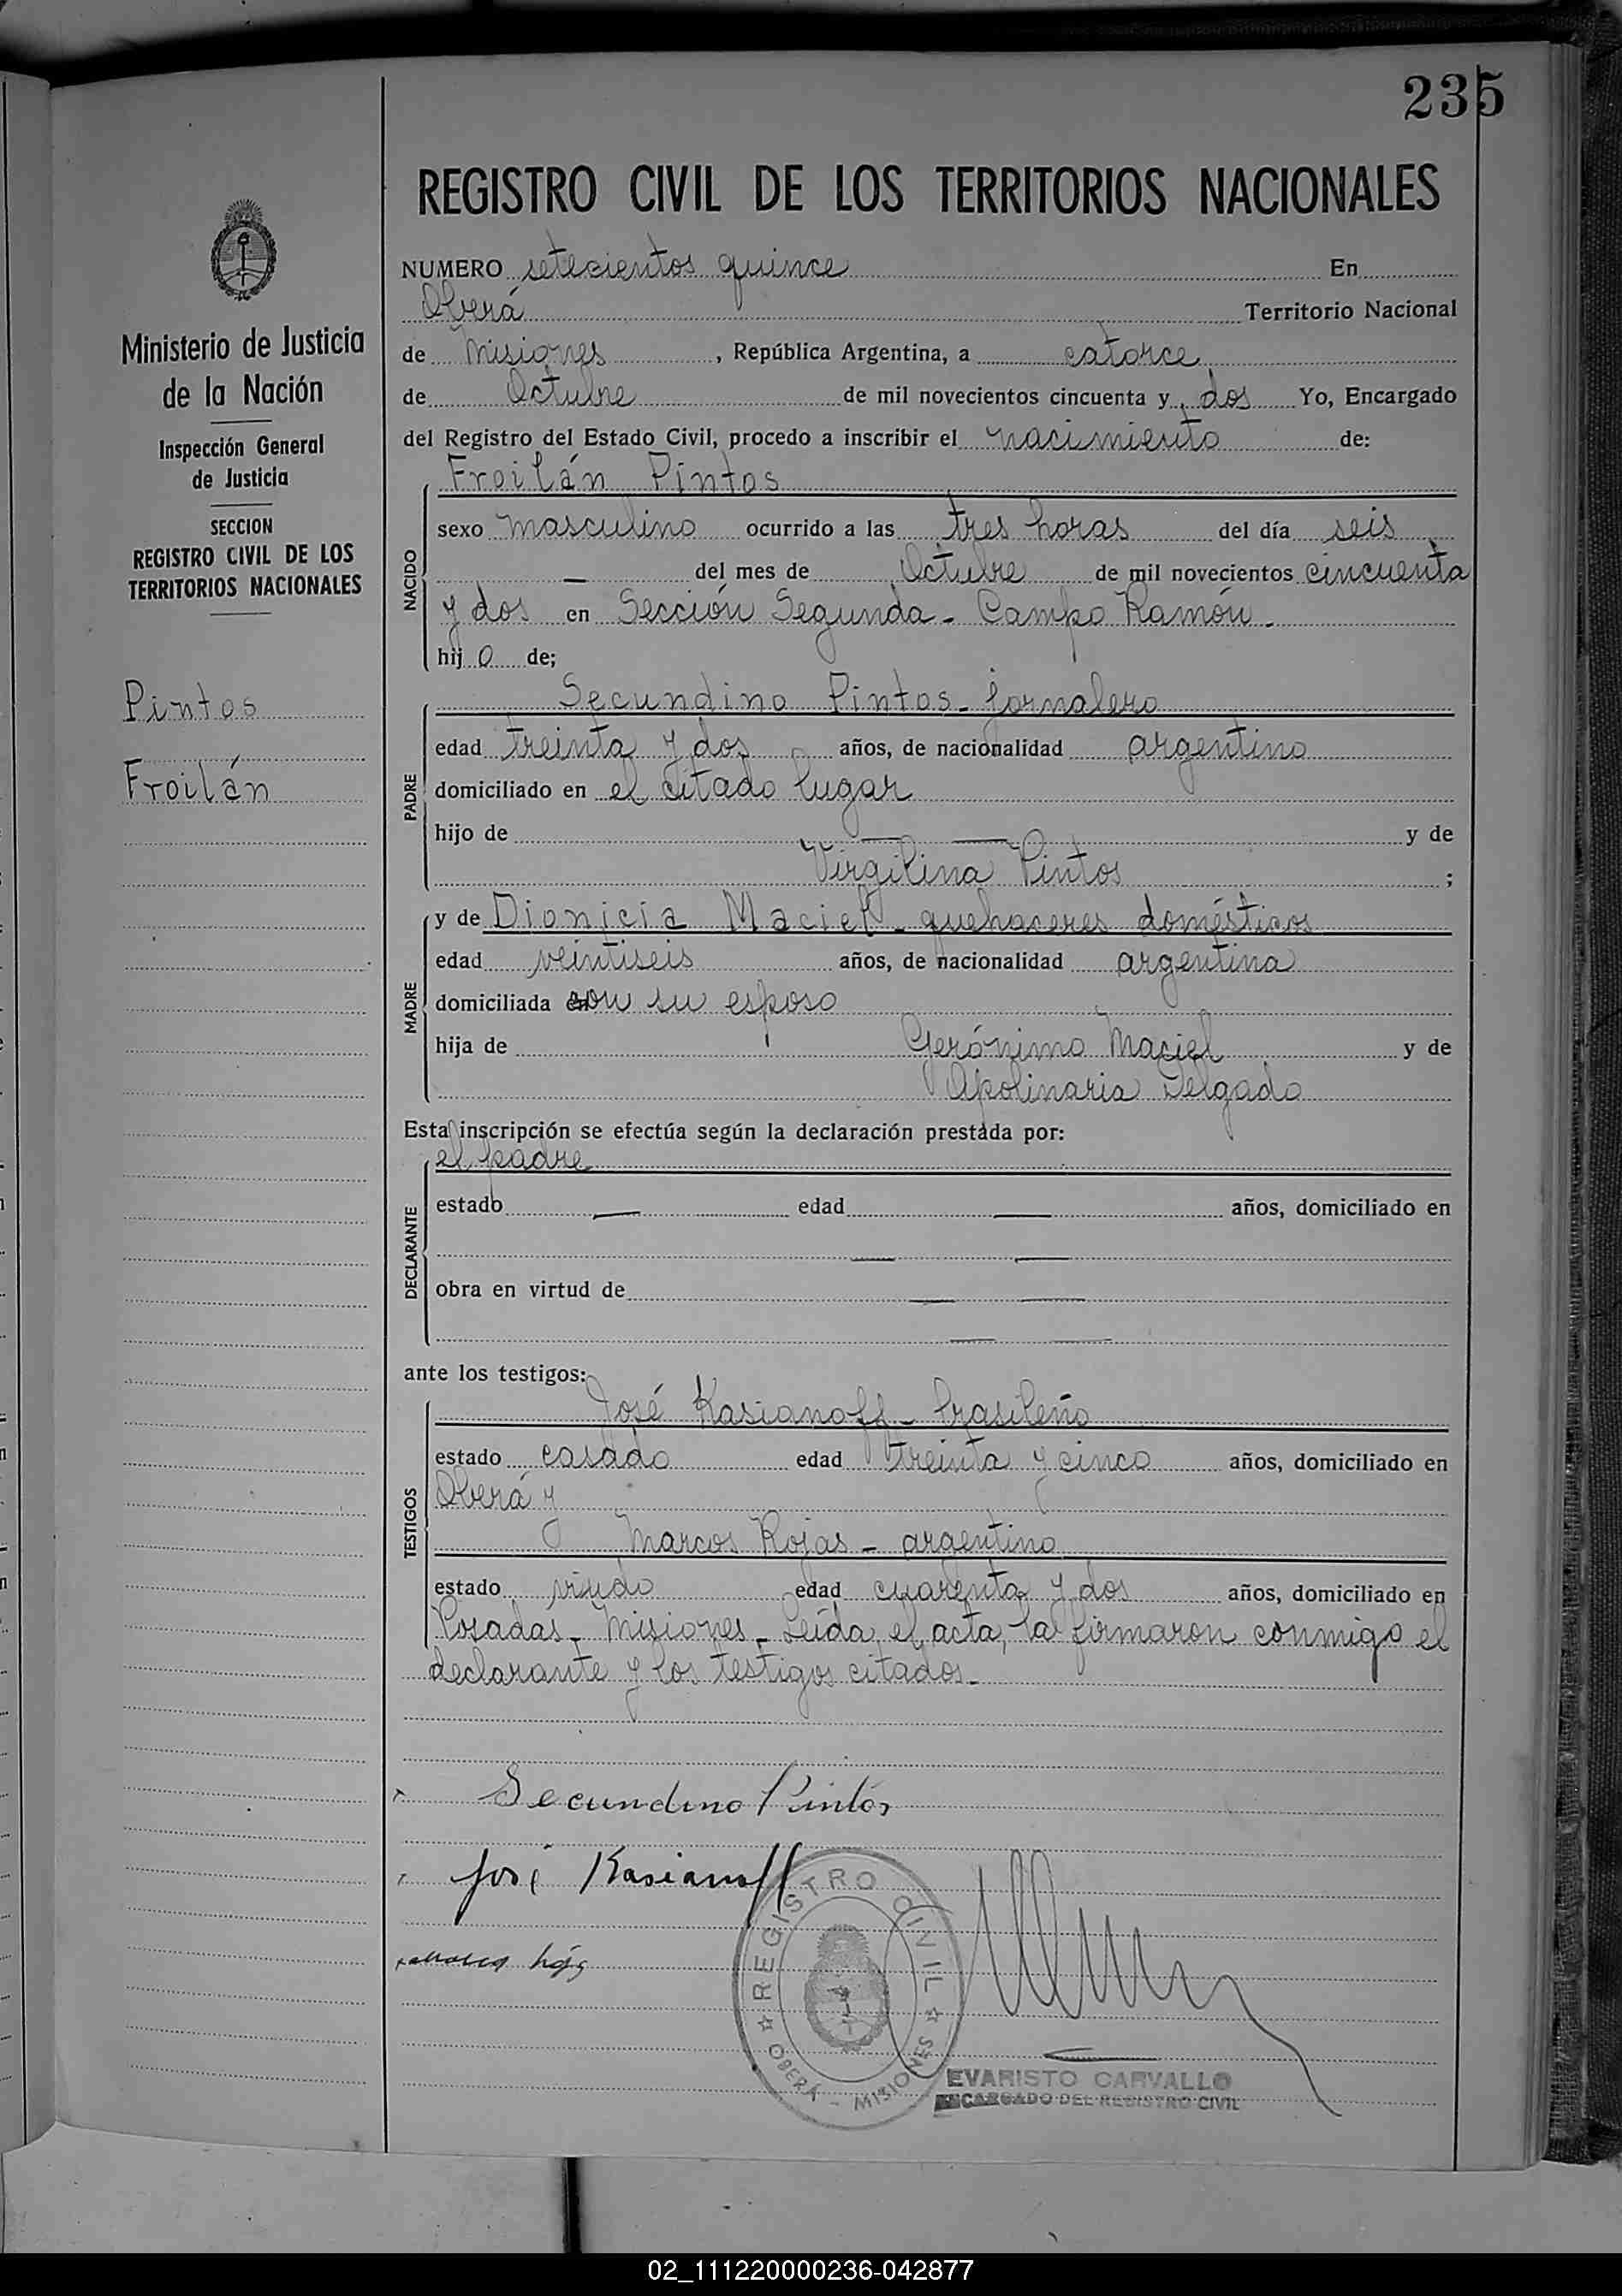 235
REGISTRO CIVIL DE LOS TERRITORIOS NACIONALES
Ministerio de Justicia
de la Nación
Inspección General
de Justicia
SECCION
REGISTRO CIVIL DE LOS
TERRITORIOS NACIONALES
Pintos
Froilán
NUMERO setecientos quince En
Oberá Territorio Nacional
de Misiones, República Argentina, a catorce
de Octubre de mil novecientos cincuenta y dos Yo, Encargado
del Registro del Estado Civil, procedo a inscribir el nacimiento de:
NACIDO
Froilán Pintos
sexo masculino ocurrido a las tres horas del día seis
— del mes de Octubre de mil novecientos cincuenta
y dos en Sección Segunda - Campo Ramón.
hijo de;
PADRE
Secundino Pintos - jornalero
edad treinta y dos años, de nacionalidad argentino
domiciliado en el citado lugar
hijo de — — y de
Virgilina Pintos ;
MADRE
y de Dionicia Maciel - quehaceres domésticos
edad veintiseis años, de nacionalidad argentina
domiciliada con su esposo
hija de Gerónimo Maciel y de
Apolinaria Delgado
Esta inscripción se efectúa según la declaración prestada por:
DECLARANTE
el padre
estado — edad — años, domiciliado en
— —
obra en virtud de — —
— —
ante los testigos:
TESTIGOS
José Kasianoff - brasileño
estado casado edad treinta y cinco años, domiciliado en
Oberá y
Marcos Rojas - argentino
estado viudo edad cuarenta y dos años, domiciliado en
Posadas - Misiones - Leída el acta, la firmaron conmigo el
declarante y los testigos citados.-
Secundino Pintos
José Kasianoff
REGISTRO CIVIL
OBERÁ - MISIONES
EVARISTO CARVALLO
ENCARGADO DEL REGISTRO CIVIL
02_111220000236-042877